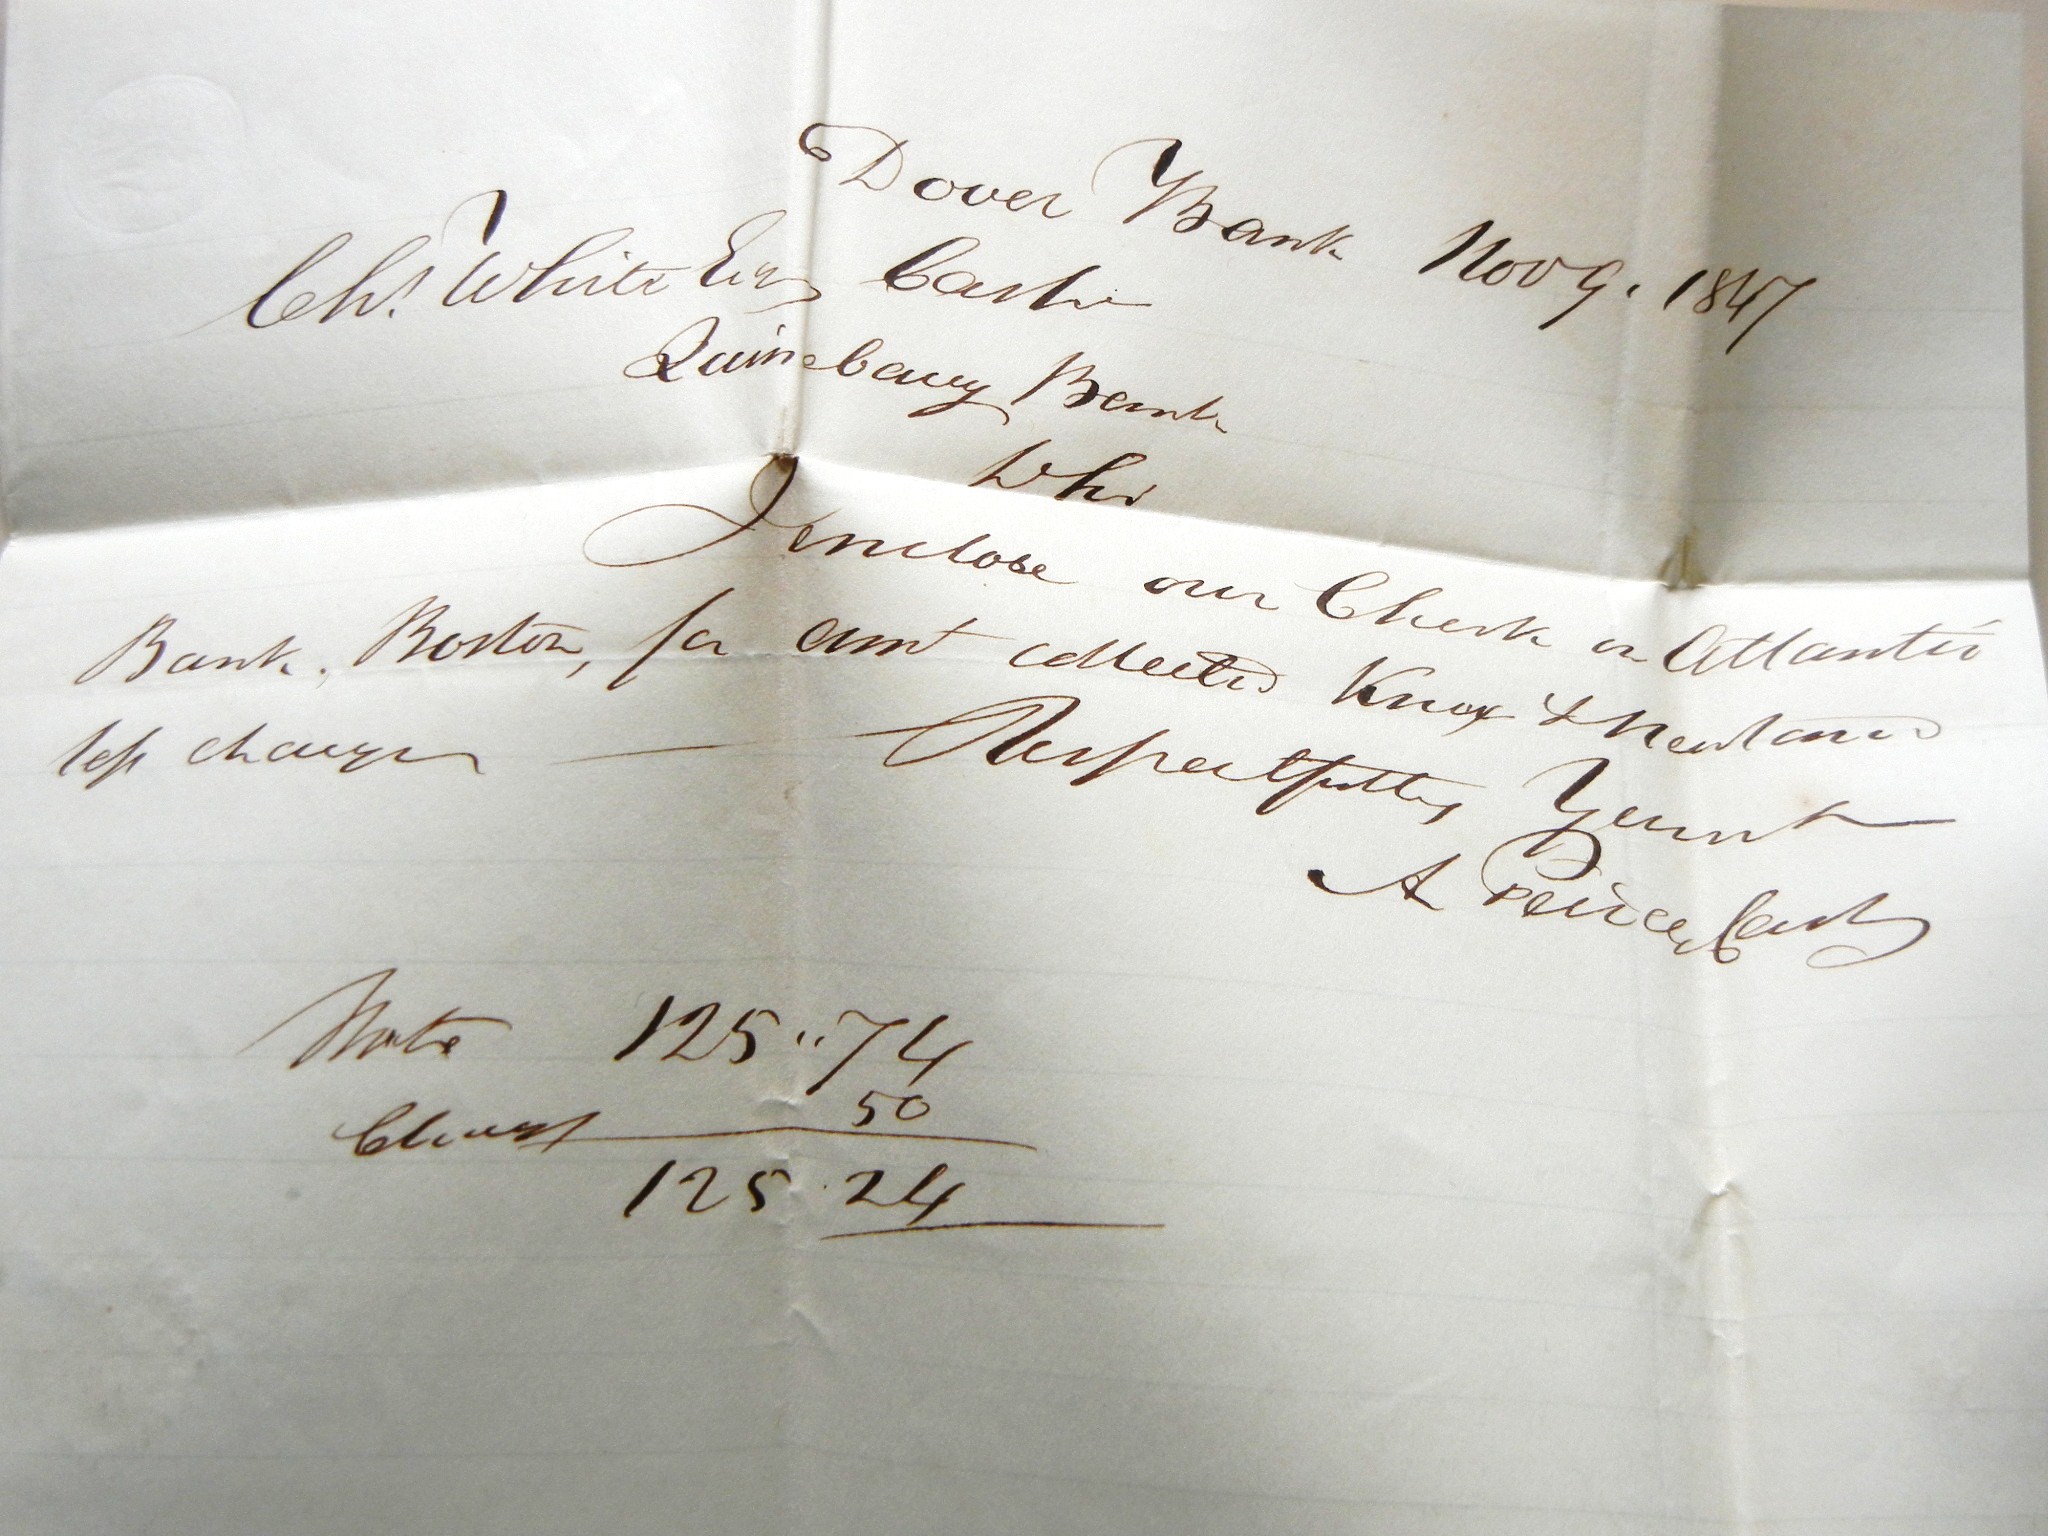 Dover Bank Nov 9. 1847
Chs. White Esq Cashr
Quinebaug Bank
I enclose our Check on Atlantic
Bank, Boston, for amt collected Knox &
less charges
Respectfully Yours
A Peirce Cash
Note 125.74
Charges 50
125.24